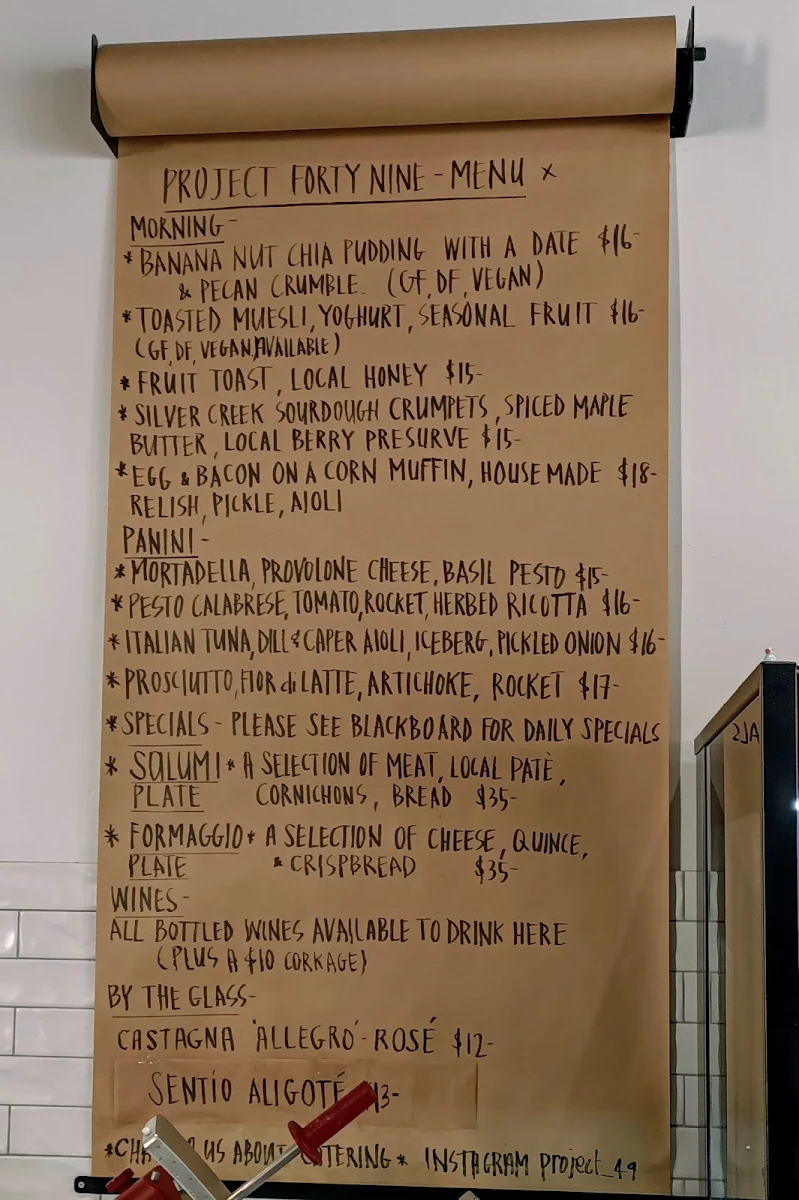 PROJECT FORTY NINE - MENU x
MORNING -
* BANANA NUT CHIA PUDDING WITH A DATE $16-
& PECAN CRUMBLE. (GF, DF, VEGAN)
* TOASTED MUESLI, YOGHURT, SEASONAL FRUIT $16-
(GF, DF, VEGAN, AVAILABLE)
* FRUIT TOAST, LOCAL HONEY $15-
* SILVER CREEK SOURDOUGH CRUMPETS, SPICED MAPLE
BUTTER, LOCAL BERRY PRESURVE $15-
* EGG & BACON ON A CORN MUFFIN, HOUSE MADE $18-
RELISH, PICKLE, AIOLI
PANINI -
* MORTADELLA, PROVOLONE CHEESE, BASIL PESTO $15-
* PESTO CALABRESE, TOMATO, ROCKET, HERBED RICOTTA $16-
* ITALIAN TUNA, DILL & CAPER AIOLI, ICEBERG, PICKLED ONION $16-
* PROSCIUTTO, FIOR di LATTE, ARTICHOKE, ROCKET $17-
* SPECIALS - PLEASE SEE BLACKBOARD FOR DAILY SPECIALS
* SALUMI * A SELECTION OF MEAT, LOCAL PATÈ,
PLATE CORNICHONS, BREAD $35-
* FORMAGGIO * A SELECTION OF CHEESE, QUINCE,
PLATE & CRISPBREAD $35-
WINES -
ALL BOTTLED WINES AVAILABLE TO DRINK HERE
(PLUS A $10 CORKAGE)
BY THE GLASS -
CASTAGNA 'ALLEGRO' - ROSÉ $12-
SENTIO ALIGOTÉ 13-
* US ABOUT * INSTAGRAM project_49